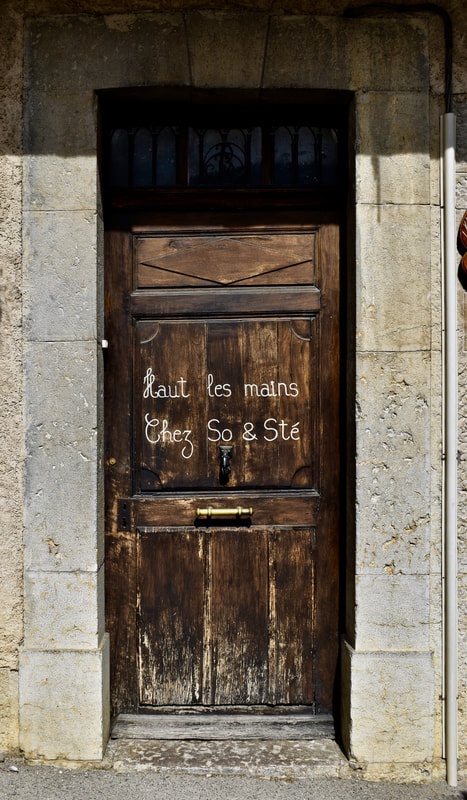 Haut les mains
Chez So & Sté